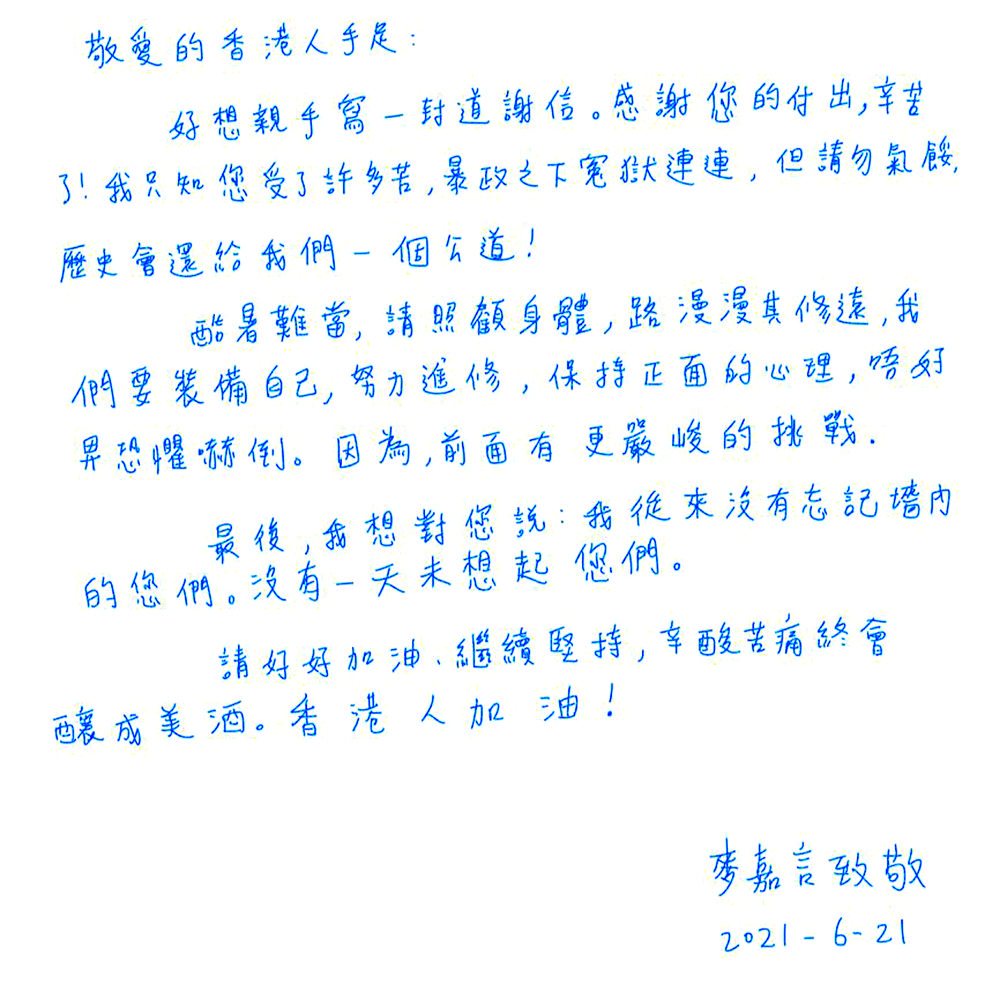 敬愛的香港人手足：
好想親手寫一封道謝信。感謝您的付出,辛苦
了!我只知您受了許多苦,暴政之下冤獄連連，但請勿氣餒,
歷史會還給我們一個公道!
酷暑難當,請照顧身體,路漫漫其修遠,我
們要裝備自己,努力進修,保持正面的心理,唔好
畀恐懼嚇倒。因為,前面有更嚴峻的挑戰.
最後,我想對您說:我從來沒有忘記墻內
的您們。沒有一天未想起您們。
請好好加油、繼續堅持,辛酸苦痛終會
釀成美酒。香港人加油!
麥嘉言致敬
2021-6-21